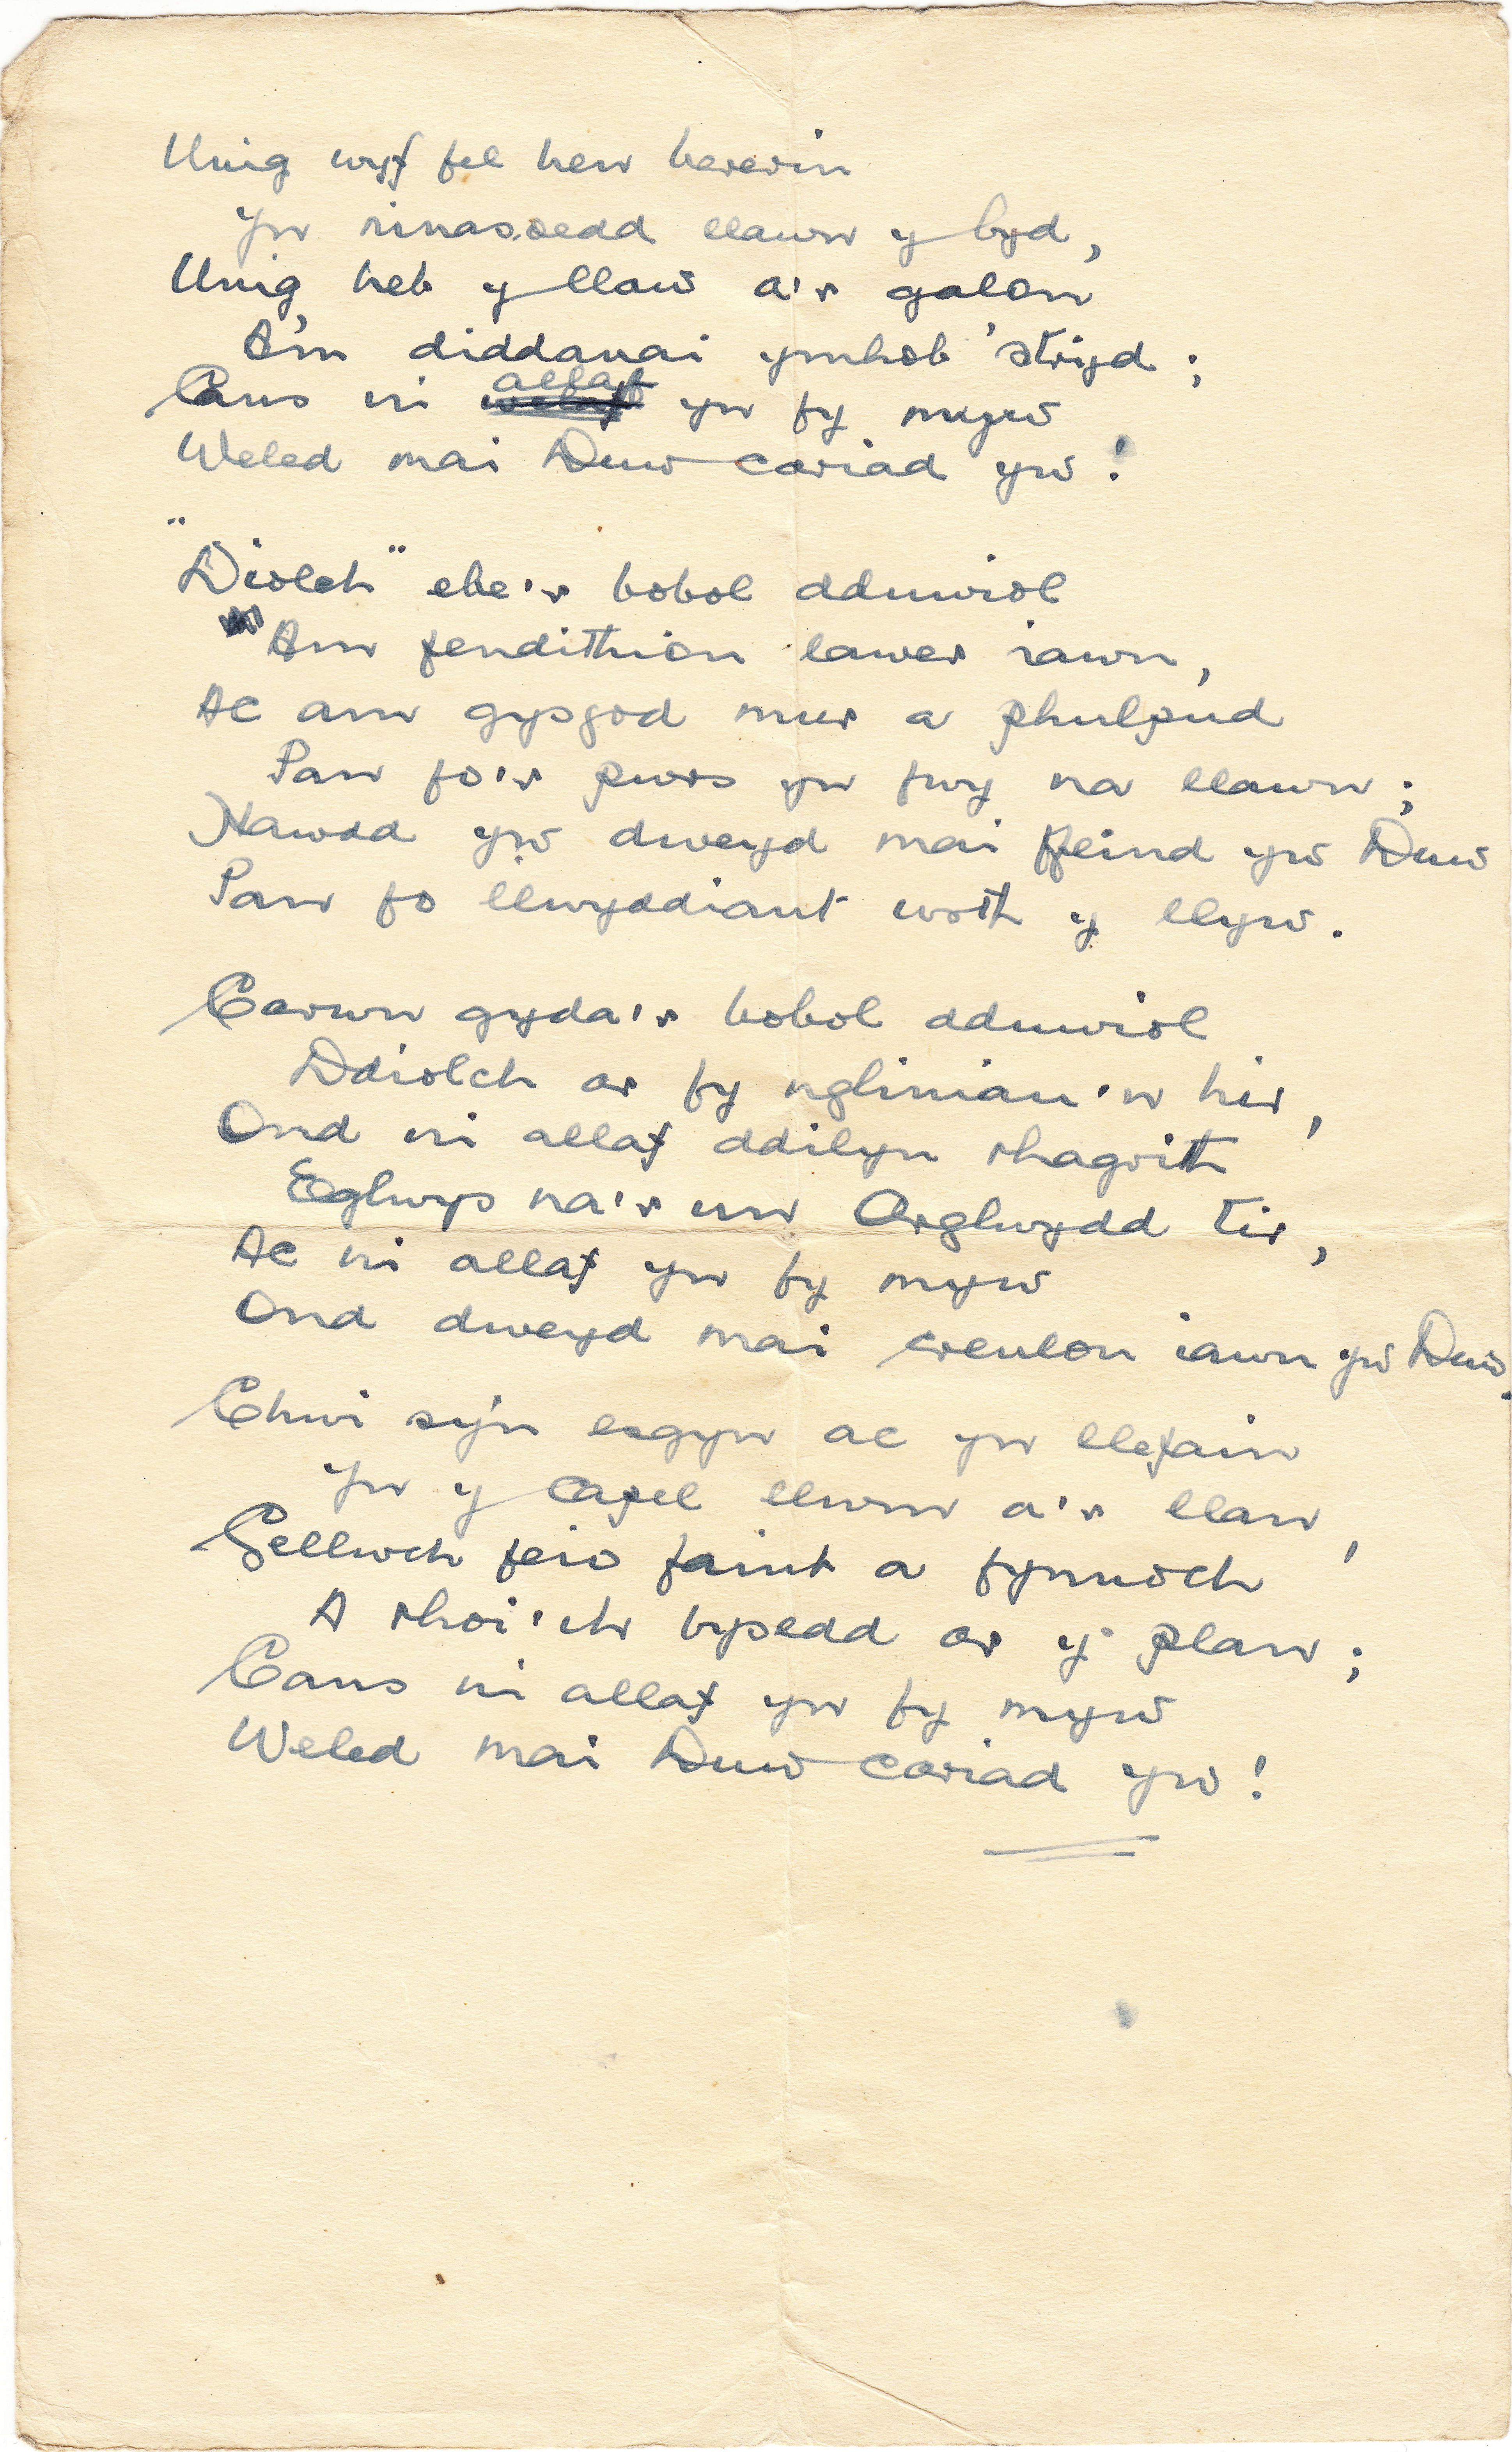 Unig wyf fel hen bererin
Yn ninasoedd llawn y byd,
Unig heb y llaw a'r galon
A'm diddanai ymhob 'stryd;
Cans ni allaf yn fy myw
Weled mai Duw cariad yw!
"Diolch" ebe'r bobol dduwiol
"Am fendithion lawer iawn,
Ac am gysgod mur a phulpud
Pan fo'r pwrs yn fwy na llawn;
Hawdd yw dweyd mai ffeind yw Duw
Pan fo llwyddiant wrth y llyw.
Carwn gyda'r bobol dduwiol
Ddiolch ar fy ngliniau'n hir,
Ond ni allaf ddilyn rhagrith
Eglwys na'r un Arglwydd tir,
Ac ni allaf yn fy myw
Ond dweyd mai creulon iawn yw Duw.
Chwi sy'n esgyn ac yn llefain
Yn y capel llwm a'r llan,
Gellwch feio faint a fynnoch
A rhoi'ch bysedd ar y plan;
Cans ni allaf yn fy myw
Weled mai Duw cariad yw!